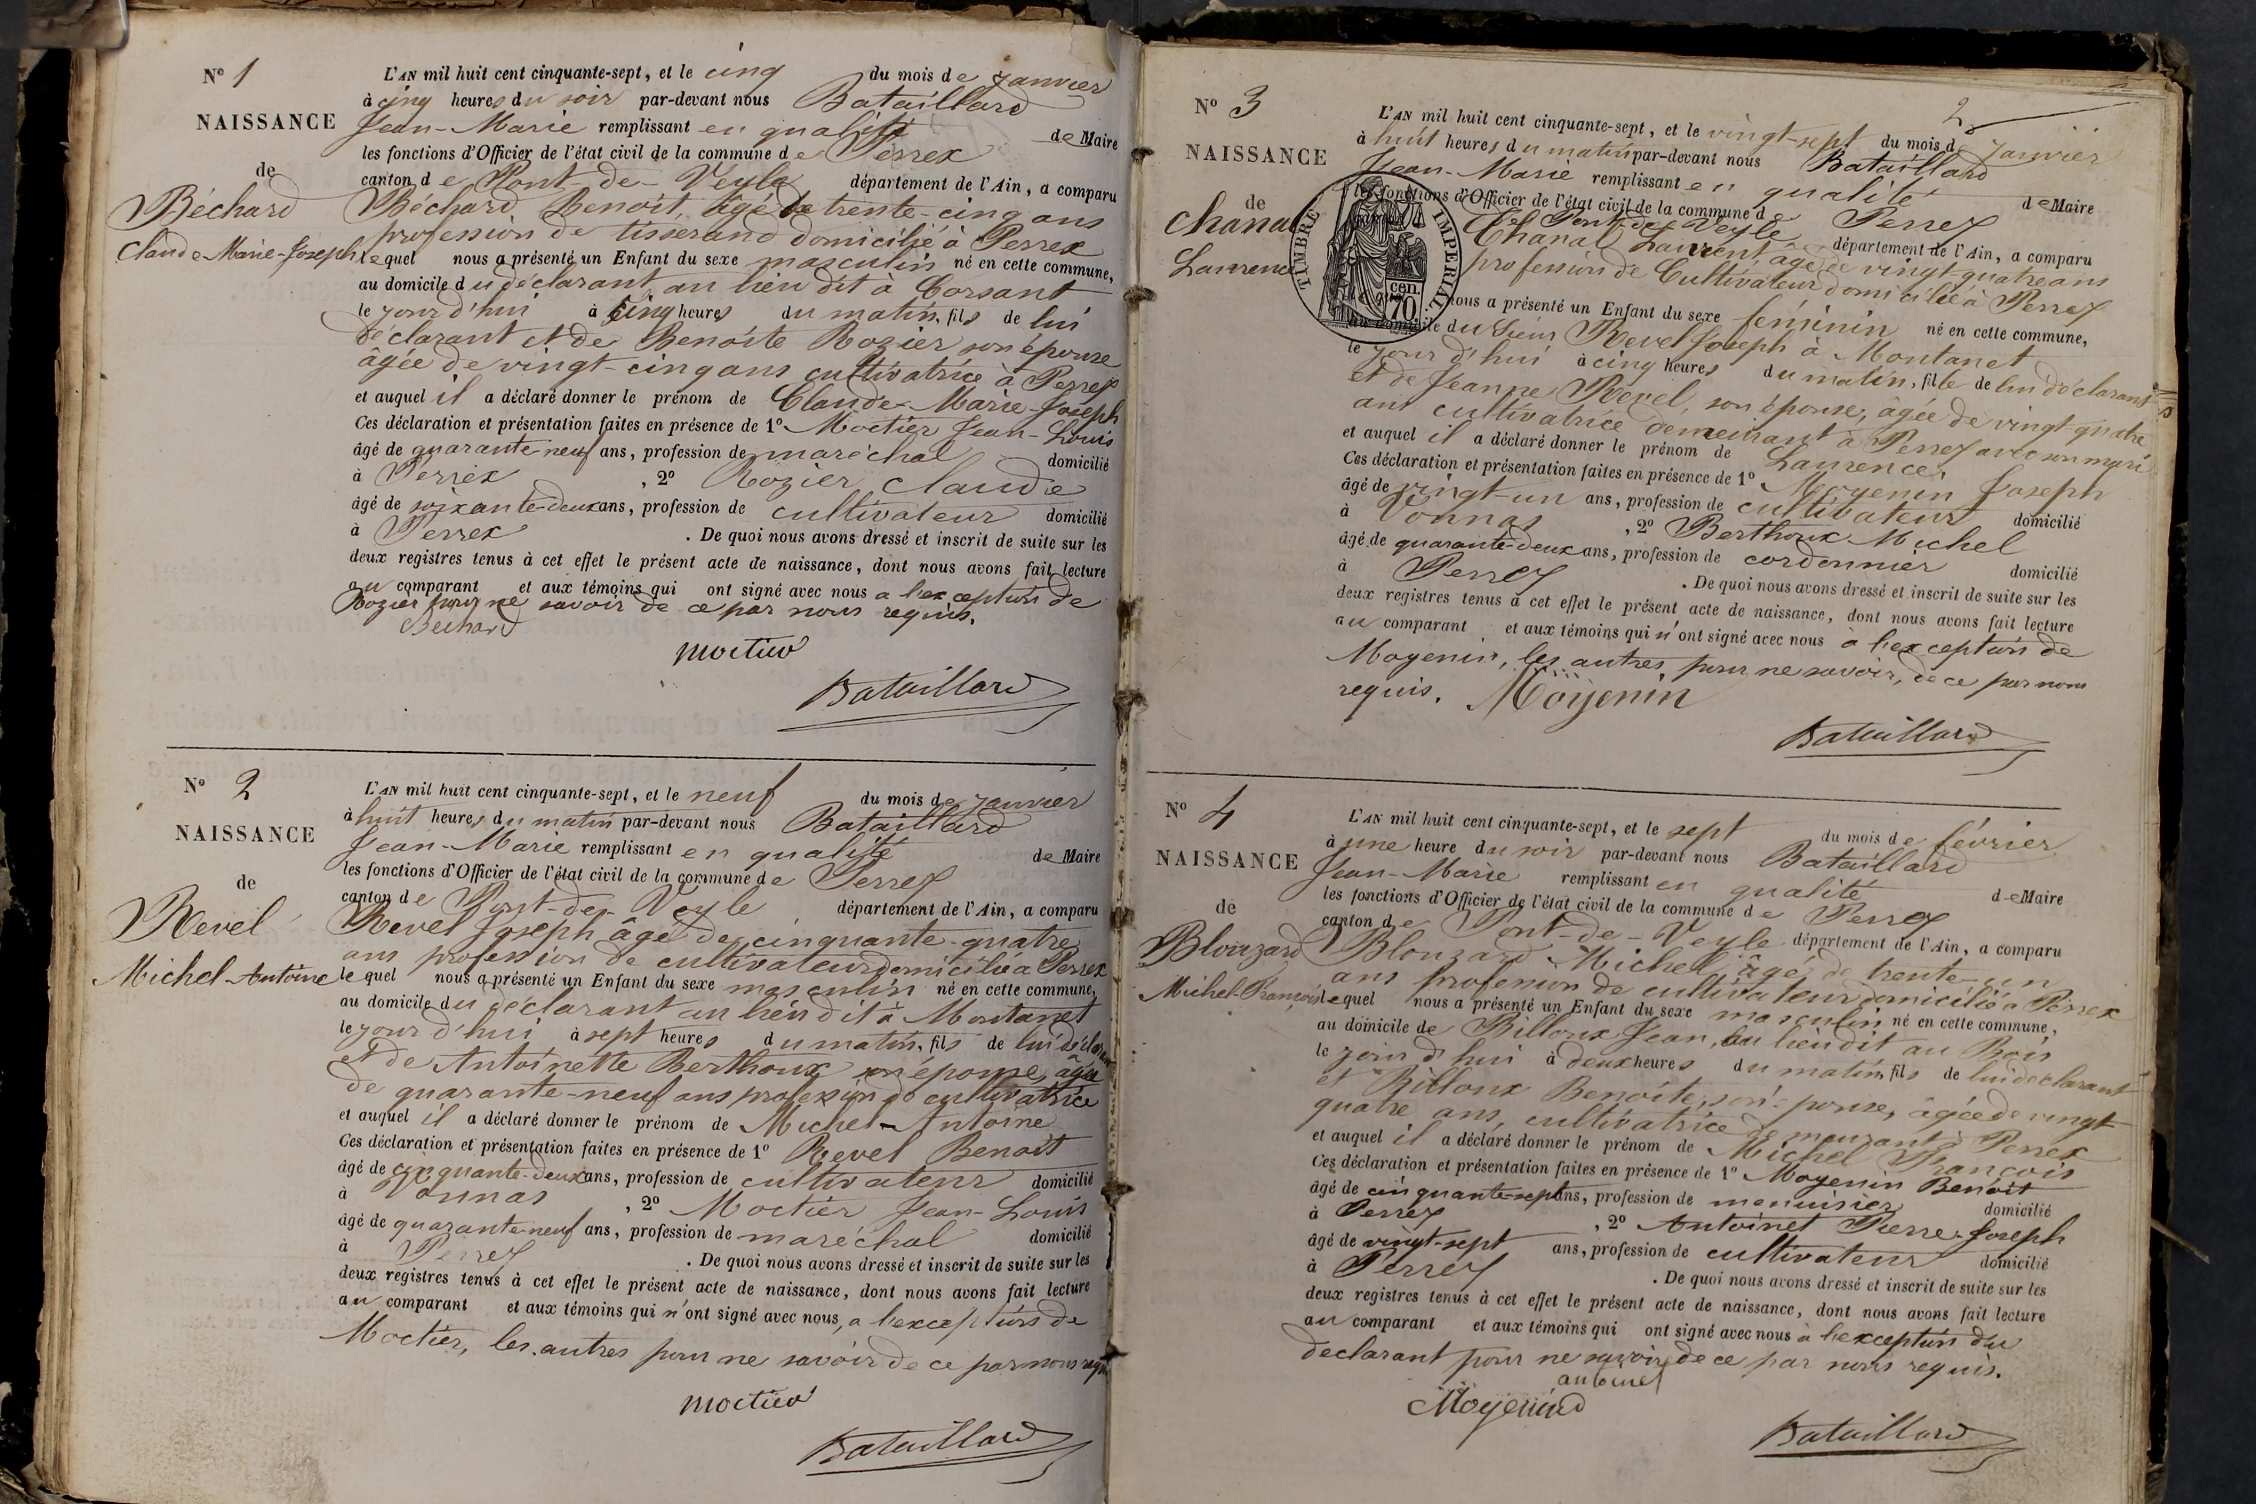 N° 1
NAISSANCE
de
Béchard
Claude Marie-Joseph
L'AN mil huit cent cinquante-sept, et le cinq du mois de Janvier
à cinq heures du soir par-devant nous Bataillard
Jean-Marie remplissant en qualité de Maire
les fonctions d'Officier de l'état civil de la commune de Perrex
canton de Pont-de-Veyle département de l'Ain, a comparu
Béchard Benoit, âgé de trente-cinq ans
profession de tisserand domicilié à Perrex
lequel nous a présenté un Enfant du sexe masculin né en cette commune,
au domicile du déclarant au lieu dit à Corsant
le jour d'hui à cinq heures du matin, fils de lui
déclarant et de Benoite Rozier son épouse
âgée de vingt-cinq ans cultivatrice à Perrex
et auquel il a déclaré donner le prénom de Claude-Marie-Joseph
Ces déclaration et présentation faites en présence de 1° Moctier Jean-Louis
âgé de quarante neuf ans, profession de maréchal domicilié
à Perrex , 2° Rozier Claude
âgé de soixante-deux ans, profession de cultivateur domicilié
à Perrex . De quoi nous avons dressé et inscrit de suite sur les
deux registres tenus à cet effet le présent acte de naissance, dont nous avons fait lecture
au comparant et aux témoins qui ont signé avec nous a l'exception de
Rozier pour ne savoir de ce par nous requis.
Bechard
Moctier
Bataillard
N° 2
NAISSANCE
de
Revel
Michel-Antoine
L'AN mil huit cent cinquante-sept, et le neuf du mois de Janvier
à huit heures du matin par-devant nous Bataillard
Jean-Marie remplissant en qualité de Maire
les fonctions d'Officier de l'état civil de la commune de Perrex
canton de Pont-de-Veyle département de l'Ain, a comparu
Revel Joseph âgé de cinquante-quatre
ans profession de cultivateur domicilié à Perrex
lequel nous a présenté un Enfant du sexe masculin né en cette commune,
au domicile du déclarant au lieu dit à Montanet
le jour d'hui à sept heures du matin, fils de lui déclarant
et de Antoinette Berthoux son épouse, âgée
de quarante-neuf ans profession de cultivatrice
et auquel il a déclaré donner le prénom de Michel-Antoine
Ces déclaration et présentation faites en présence de 1° Revel Benoit
âgé de cinquante-deux ans, profession de cultivateur domicilié
à Vonnas , 2° Moctier Jean-Louis
âgé de quarante neuf ans, profession de maréchal domicilié
à Perrex . De quoi nous avons dressé et inscrit de suite sur les
deux registres tenus à cet effet le présent acte de naissance, dont nous avons fait lecture
au comparant et aux témoins qui n'ont signé avec nous, a l'exception de
Moctier, les autres pour ne savoir de ce par nous requis
Moctier
Bataillard
2
N° 3
NAISSANCE
de
Chanal
Laurence
TIMBRE IMPERIAL
70 cen.
L'AN mil huit cent cinquante-sept, et le vingt-sept du mois de Janvier
à huit heures du matin par-devant nous Bataillard
Jean-Marie remplissant en qualité de Maire
les fonctions d'Officier de l'état civil de la commune de Perrex
Pont-de-Veyle département de l'Ain, a comparu
Chanal Laurent âgé de vingt quatre ans
profession de Cultivateur domicilié à Perrex
nous a présenté un Enfant du sexe feminin né en cette commune,
au domicile du Sieur Revel Joseph à Montanet
le jour d'hui à cinq heures du matin, fille de lui déclarant
et de Jeanne Revel, son épouse, âgée de vingt quatre
ans cultivatrice demeurant à Perrex avec son mari
et auquel il a déclaré donner le prénom de Laurence.
Ces déclaration et présentation faites en présence de 1° Moyenin Joseph
âgé de vingt-un ans, profession de cultivateur domicilié
à Vonnas , 2° Berthoux Michel
âgé de quarante-deux ans, profession de cordonnier domicilié
à Perrex . De quoi nous avons dressé et inscrit de suite sur les
deux registres tenus à cet effet le présent acte de naissance, dont nous avons fait lecture
au comparant et aux témoins qui n'ont signé avec nous à l'exception de
Moyenin, les autres pour ne savoir, de ce par nous
requis. Moyenin
Bataillard
N° 4
NAISSANCE
de
Blouzard
Michel-François
L'AN mil huit cent cinquante-sept, et le sept du mois de février
à une heure du soir par-devant nous Bataillard
Jean-Marie remplissant en qualité de Maire
les fonctions d'Officier de l'état civil de la commune de Perrex
canton de Pont-de-Veyle département de l'Ain, a comparu
Blouzard Michel âgé de trente-un
ans profession de cultivateur domicilié à Perrex
lequel nous a présenté un Enfant du sexe masculin né en cette commune,
au domicile de Billoux Jean, au lieu dit au Bois
le jour d'hui à deux heures du matin, fils de lui déclarant
et Billoux Benoite, son épouse, âgée de vingt-
quatre ans, cultivatrice demeurant à Perrex
et auquel il a déclaré donner le prénom de Michel François
Ces déclaration et présentation faites en présence de 1° Moyenin Benoit
âgé de cinquante-sept ans, profession de menuisier domicilié
à Perrex , 2° Antoinet Pierre-Joseph
âgé de vingt-sept ans, profession de cultivateur domicilié
à Perrex . De quoi nous avons dressé et inscrit de suite sur les
deux registres tenus à cet effet le présent acte de naissance, dont nous avons fait lecture
au comparant et aux témoins qui ont signé avec nous à l'exception du
declarant pour ne savoir de ce par nous requis.
antoinet
Moyenind
Bataillard